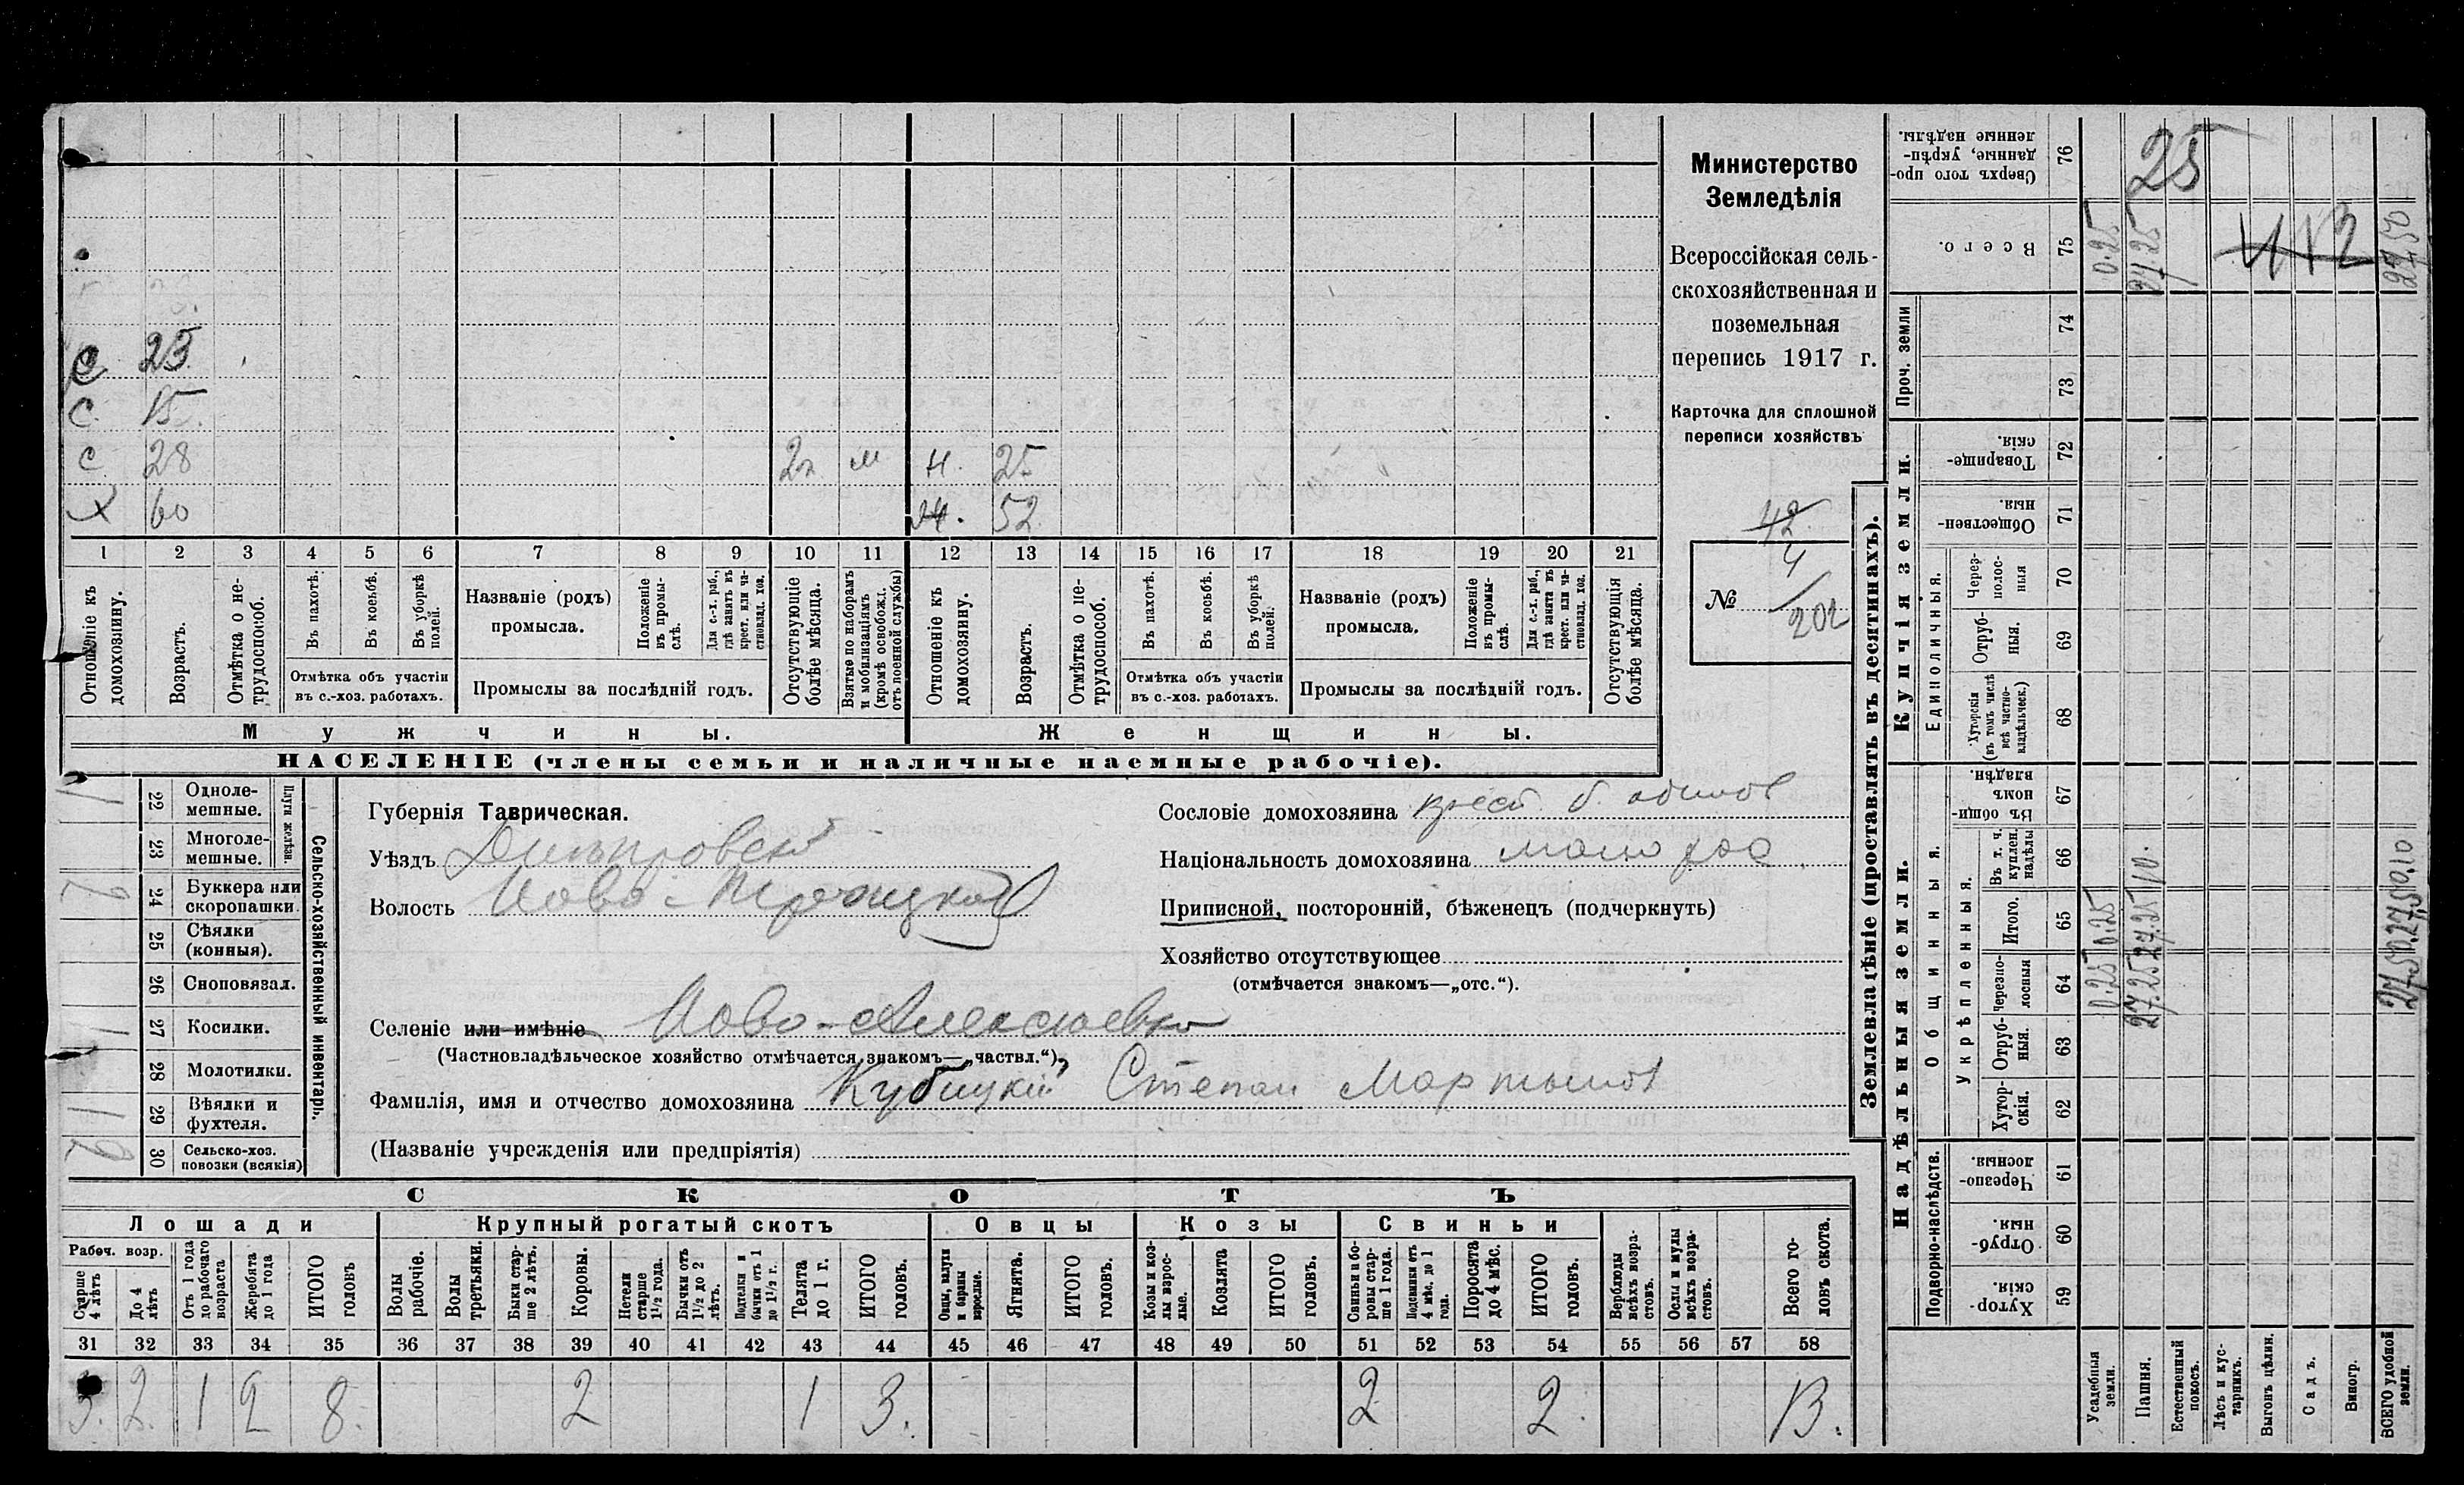 С 23
С 15.
с 28 2 м н. 25
Х 60 ж. 52
1 2 3 4 5 6 7 8 9 10 11 12 13 14 15 16 17 18 19 20 21
Отношеніе къ домохозяину.
Возрастъ.
Отмѣтка о нетрудоспособ.
Въ пахотѣ.
Въ косьбѣ.
Въ уборкѣ полей.
Отмѣтка объ участіи
въ с.-хоз. работахъ.
Названіе (родъ)
промысла.
Положеніе въ промыслѣ.
Для с.-х. раб., гдѣ занятъ въ крест. или частновлад. хоз.
Промыслы за послѣдній годъ.
Отсутствующіе болѣе мѣсяца.
Взятые по наборамъ и мобилизаціямъ (кромѣ освобожд. отъ военной службы)
Отношеніе къ домохозяину.
Возрастъ.
Отмѣтка о нетрудоспособ.
Въ пахотѣ.
Въ косьбѣ.
Въ уборкѣ полей.
Отмѣтка объ участіи
въ с.-хоз. работахъ.
Названіе (родъ)
промысла.
Положеніе въ промыслѣ.
Для с.-х. раб., гдѣ занята въ крест. или частновлад. хоз.
Промыслы за послѣдній годъ.
Отсутствующія болѣе мѣсяца.
Мужчины. Женщины.
НАСЕЛЕНІЕ (члены семьи и наличные наемные рабочіе).
Министерство
Земледѣлія
Всероссійская сель-
скохозяйственная и
поземельная
перепись 1917 г.
Карточка для сплошной
переписи хозяйствъ
42
№ 4/202
Сельско-хозяйственный инвентарь.
Плуги желѣзн.
22 Однолемешные. 1
23 Многолемешные.
24 Буккера или скоропашки
25 Сѣялки (конныя).
26 Сноповязал.
27 Косилки. 1
28 Молотилки.
29 Вѣялки и фухтеля. 1
30 Сельско-хоз. повозки (всякія) 2
Губернія Таврическая.
Уѣздъ Днѣпровскій
Волость Ново-Троицкая
Сословіе домохозяина крест. б.
Національность домохозяина малорос.
Приписной, посторонній, бѣженецъ (подчеркнуть)
Хозяйство отсутствующее
(отмѣчается знакомъ—„отс.“).
Селеніе или имѣніе Ново-Алексѣевка
(Частновладѣльческое хозяйство отмѣчается знакомъ—„частвл.“)
Фамилія, имя и отчество домохозяина Кубицкій Степан Мартынов
(Названіе учрежденія или предпріятія)
СКОТЪ
Лошади Крупный рогатый скотъ Овцы Козы Свиньи
Рабоч. возр.
Старше 4 лѣтъ
До 4 лѣтъ
Отъ 1 года до рабочаго возраста
Жеребята до 1 года
ИТОГО головъ
Волы рабочіе.
Волы третьяки.
Быки старше 2 лѣтъ.
Коровы.
Нетели старше 1½ года.
Бычки отъ 1½ до 2 лѣтъ.
Подтелки и бычки отъ 1 до 1½ г.
Телята до 1 г.
ИТОГО головъ.
Овцы, валухи и бараны взрослые.
Ягнята.
ИТОГО головъ.
Козы и козлы взрослые.
Козлята
ИТОГО головъ.
Свиньи и боровы старше 1 года.
Подсвинки отъ 4 мѣс. до 1 года.
Поросята до 4 мѣс.
ИТОГО головъ.
Верблюды всѣхъ возрастовъ.
Ослы и мулы всѣхъ возрастовъ.
Всего головъ скота.
31 32 33 34 35 36 37 38 39 40 41 42 43 44 45 46 47 48 49 50 51 52 53 54 55 56 57 58
3. 2. 1 2 8. 2 1 3. 2 2. 13.
Землевладѣніе (проставлять въ десятинахъ).
Надѣльныя земли. Купчія земли.
Подворно-наслѣдств. Общинныя. Укрѣпленныя. Единоличныя. Проч. земли
59 Хуторскія.
60 Отрубныя.
61 Черезполосныя.
62 Хуторскія.
63 Отрубныя.
64 Черезполосныя 0.25 27.25 27.50
65 Итого. 0.25 27.25 27.50
66 Въ т. ч. куплен. надѣлы 10. 10
67 Въ общинномъ владѣн.
68 Хуторскія (въ томъ числѣ всѣ частновладѣльческ.)
69 Отрубныя.
70 Черезполосныя
71 Общественныя.
72 Товарищескія.
73
74
75 Всего. 0.25 27.25 27.50
76 Сверхъ того проданные, укрѣпленные надѣлы.
25
Усадебныя земли.
Пашня.
Естественный покосъ.
Лѣсъ и кустарникъ.
Выгонъ цѣлин.
Садъ.
Виногр.
ВСЕГО удобной земли.